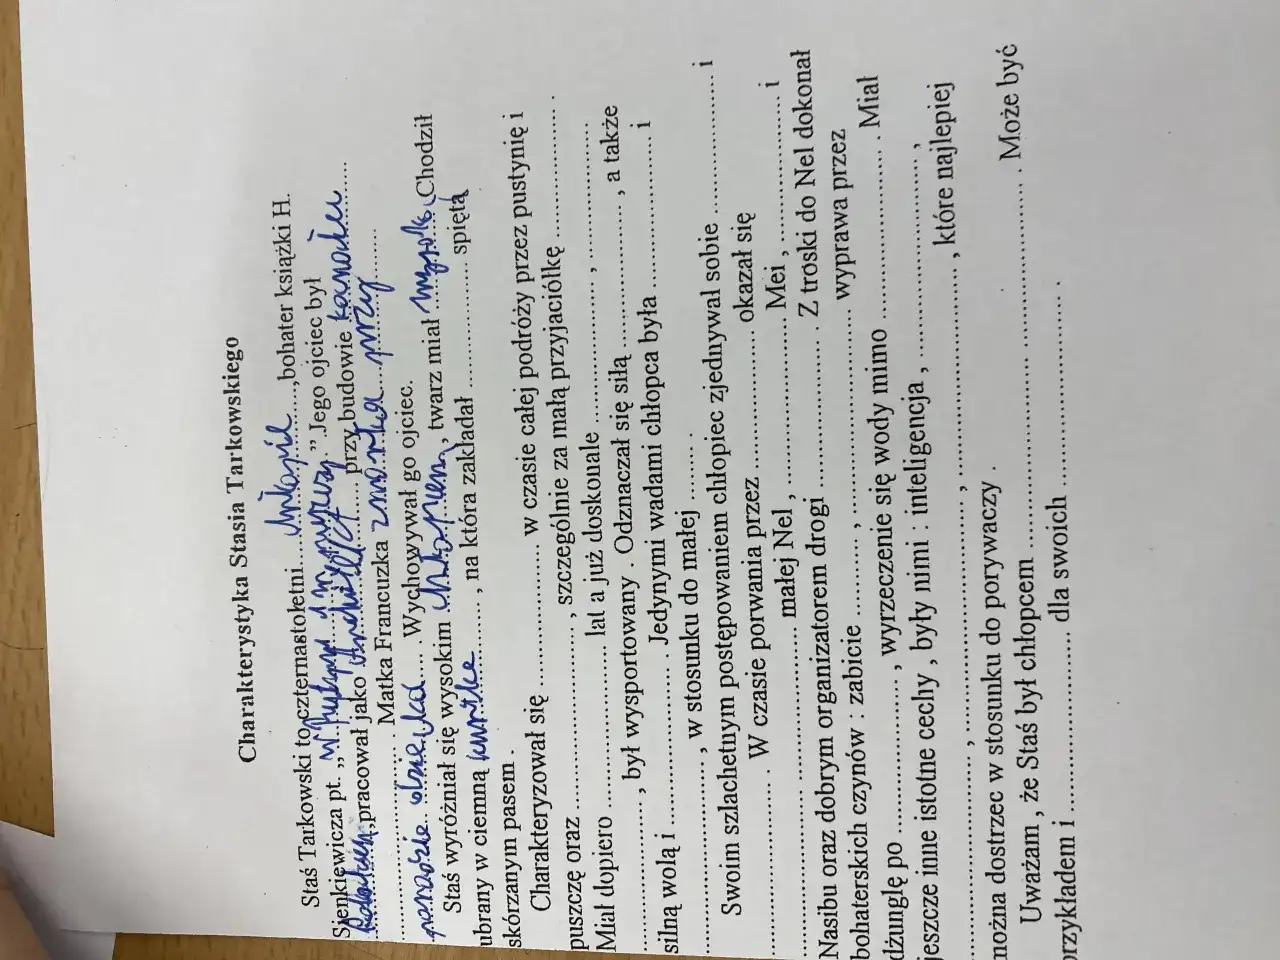 Charakterystyka Stasia Tarkowskiego
Staś Tarkowski to czternastoletni.... chłopic ......,bohater książki H.
Sienkiewicza pt. „ W Pustyni i w puszczy.” Jego ojciec był
Polakiem,pracował jako ........ przy budowie kanału
.................... Matka Francuzka zmarła przy
porodzie dziecka..... Wychowywał go ojciec.
Staś wyróżniał się wysokim , twarz miał . Chodził
ubrany w ciemną kurtkę ........ , na która zakładał ................ spiętą
skórzanym pasem .
Charakteryzował się .................... w czasie całej podróży przez pustynię i
puszczę oraz .........................., szczególnie za małą przyjaciółkę .................. .
Miał dopiero ......................... lat a już doskonale ......................, ......................
................, był wysportowany . Odznaczał się siłą ......................, a także
silną wolą i ........................ . Jedynymi wadami chłopca była ...................... i
.............................., w stosunku do małej ........ .
Swoim szlachetnym postępowaniem chłopiec zjednywał sobie .................... i
......................... . W czasie porwania przez ................... okazał się
.................................. małej Nel , .......................... Mei , .................... i
Nasibu oraz dobrym organizatorem drogi ...................... . Z troski do Nel dokonał
bohaterskich czynów : zabicie ............, ............................ wyprawa przez
dżunglę po ......................, wyrzeczenie się wody mimo .......................... . Miał
jeszcze inne istotne cechy , były nimi : inteligencja , ..........................,
.........................., ............................, .............................., które najlepiej
można dostrzec w stosunku do porywaczy .
Uważam , że Staś był chłopcem .............................................. . Może być
przykładem i ......................... dla swoich ........................... .